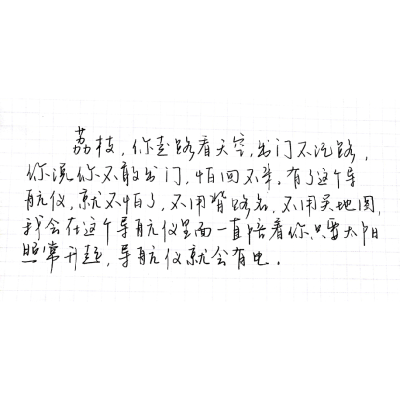 荔枝，你走路看天空，出门不记路，
你说你不敢出门，怕回不来。有了这个导
航仪，就不怕了，不用背路名，不用买地图，
我会在这个导航仪里面一直陪着你，只要太阳
照常升起，导航仪就会有电。